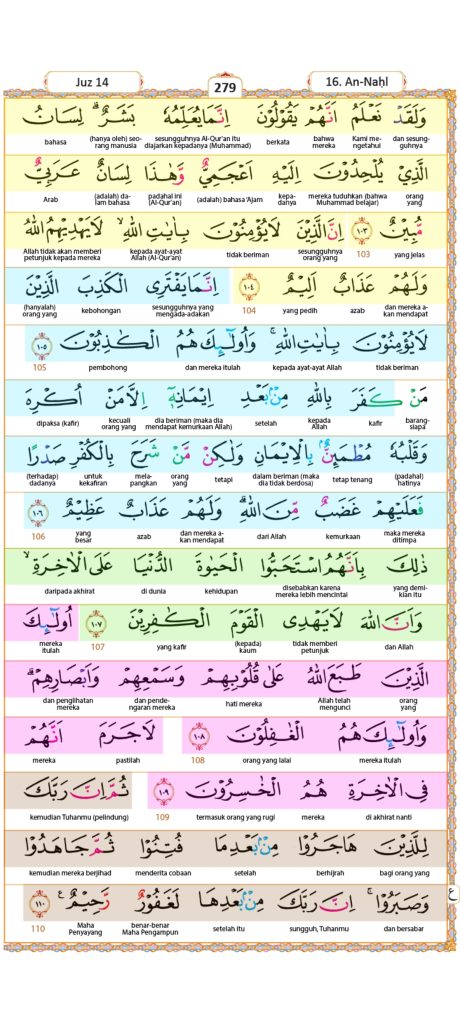 Juz 14 279 16. An-Naḥl
وَلَقَدْ نَعْلَمُ اَنَّهُمْ يَقُوْلُوْنَ اِنَّمَا يُعَلِّمُهٗ بَشَرٌۗ لِسَانُ
dan sesungguhnya Kami mengetahui bahwa mereka berkata sesungguhnya Al-Qur'an itu diajarkan kepadanya (Muhammad) (hanya oleh) seorang manusia bahasa
الَّذِيْ يُلْحِدُوْنَ اِلَيْهِ اَعْجَمِيٌّ وَّهٰذَا لِسَانٌ عَرَبِيٌّ
orang yang mereka tuduhkan (bahwa Muhammad belajar) kepadanya (adalah) bahasa 'Ajam padahal ini (Al-Qur'an) (adalah) dalam bahasa Arab
مُّبِيْنٌ ١٠٣ اِنَّ الَّذِيْنَ لَا يُؤْمِنُوْنَ بِاٰيٰتِ اللّٰهِۙ لَا يَهْدِيْهِمُ اللّٰهُ
yang jelas 103 sesungguhnya orang yang tidak beriman kepada ayat-ayat Allah (Al-Qur'an) Allah tidak akan memberi petunjuk kepada mereka
وَلَهُمْ عَذَابٌ اَلِيْمٌ ١٠٤ اِنَّمَا يَفْتَرِى الْكَذِبَ الَّذِيْنَ
dan mereka akan mendapat azab yang pedih 104 sesungguhnya yang mengada-adakan kebohongan (hanyalah) orang yang
لَا يُؤْمِنُوْنَ بِاٰيٰتِ اللّٰهِۚ وَاُولٰۤىِٕكَ هُمُ الْكٰذِبُوْنَ ١٠٥
tidak beriman kepada ayat-ayat Allah dan mereka itulah pembohong 105
مَنْ كَفَرَ بِاللّٰهِ مِنْۢ بَعْدِ اِيْمَانِهٖٓ اِلَّا مَنْ اُكْرِهَ
barangsiapa kafir kepada Allah setelah dia beriman (maka dia mendapat kemurkaan Allah) kecuali orang yang dipaksa (kafir)
وَقَلْبُهٗ مُطْمَىِٕنٌّۢ بِالْاِيْمَانِ وَلٰكِنْ مَّنْ شَرَحَ بِالْكُفْرِ صَدْرًا
(padahal) hatinya tetap tenang dalam beriman (maka dia tidak berdosa) tetapi orang yang melapangkan untuk kekafiran (terhadap) dadanya
فَعَلَيْهِمْ غَضَبٌ مِّنَ اللّٰهِۗ وَلَهُمْ عَذَابٌ عَظِيْمٌ ١٠٦
maka mereka ditimpa kemurkaan dari Allah dan mereka akan mendapat azab yang besar 106
ذٰلِكَ بِاَنَّهُمُ اسْتَحَبُّوا الْحَيٰوةَ الدُّنْيَا عَلَى الْاٰخِرَةِۙ
yang demikian itu disebabkan karena mereka lebih mencintai kehidupan di dunia daripada akhirat
وَاَنَّ اللّٰهَ لَا يَهْدِى الْقَوْمَ الْكٰفِرِيْنَ ١٠٧ اُولٰۤىِٕكَ
dan Allah tidak memberi petunjuk (kepada) kaum yang kafir 107 mereka itulah
الَّذِيْنَ طَبَعَ اللّٰهُ عَلٰى قُلُوْبِهِمْ وَسَمْعِهِمْ وَاَبْصَارِهِمْۗ
orang yang Allah telah mengunci hati mereka dan pendengaran mereka dan penglihatan mereka
وَاُولٰۤىِٕكَ هُمُ الْغٰفِلُوْنَ ١٠٨ لَا جَرَمَ اَنَّهُمْ
mereka itulah orang yang lalai 108 pastilah mereka
فِى الْاٰخِرَةِ هُمُ الْخٰسِرُوْنَ ١٠٩ ثُمَّ اِنَّ رَبَّكَ
di akhirat nanti mereka termasuk orang yang rugi 109 kemudian Tuhanmu (pelindung)
لِلَّذِيْنَ هَاجَرُوْا مِنْۢ بَعْدِ مَا فُتِنُوْا ثُمَّ جَاهَدُوْا
bagi orang yang berhijrah setelah menderita cobaan kemudian mereka berjihad
وَصَبَرُوْاۚ اِنَّ رَبَّكَ مِنْۢ بَعْدِهَا لَغَفُوْرٌ رَّحِيْمٌ ࣖ ١١٠ ع
dan bersabar sungguh, Tuhanmu setelah itu benar-benar Maha Pengampun Maha Penyayang 110